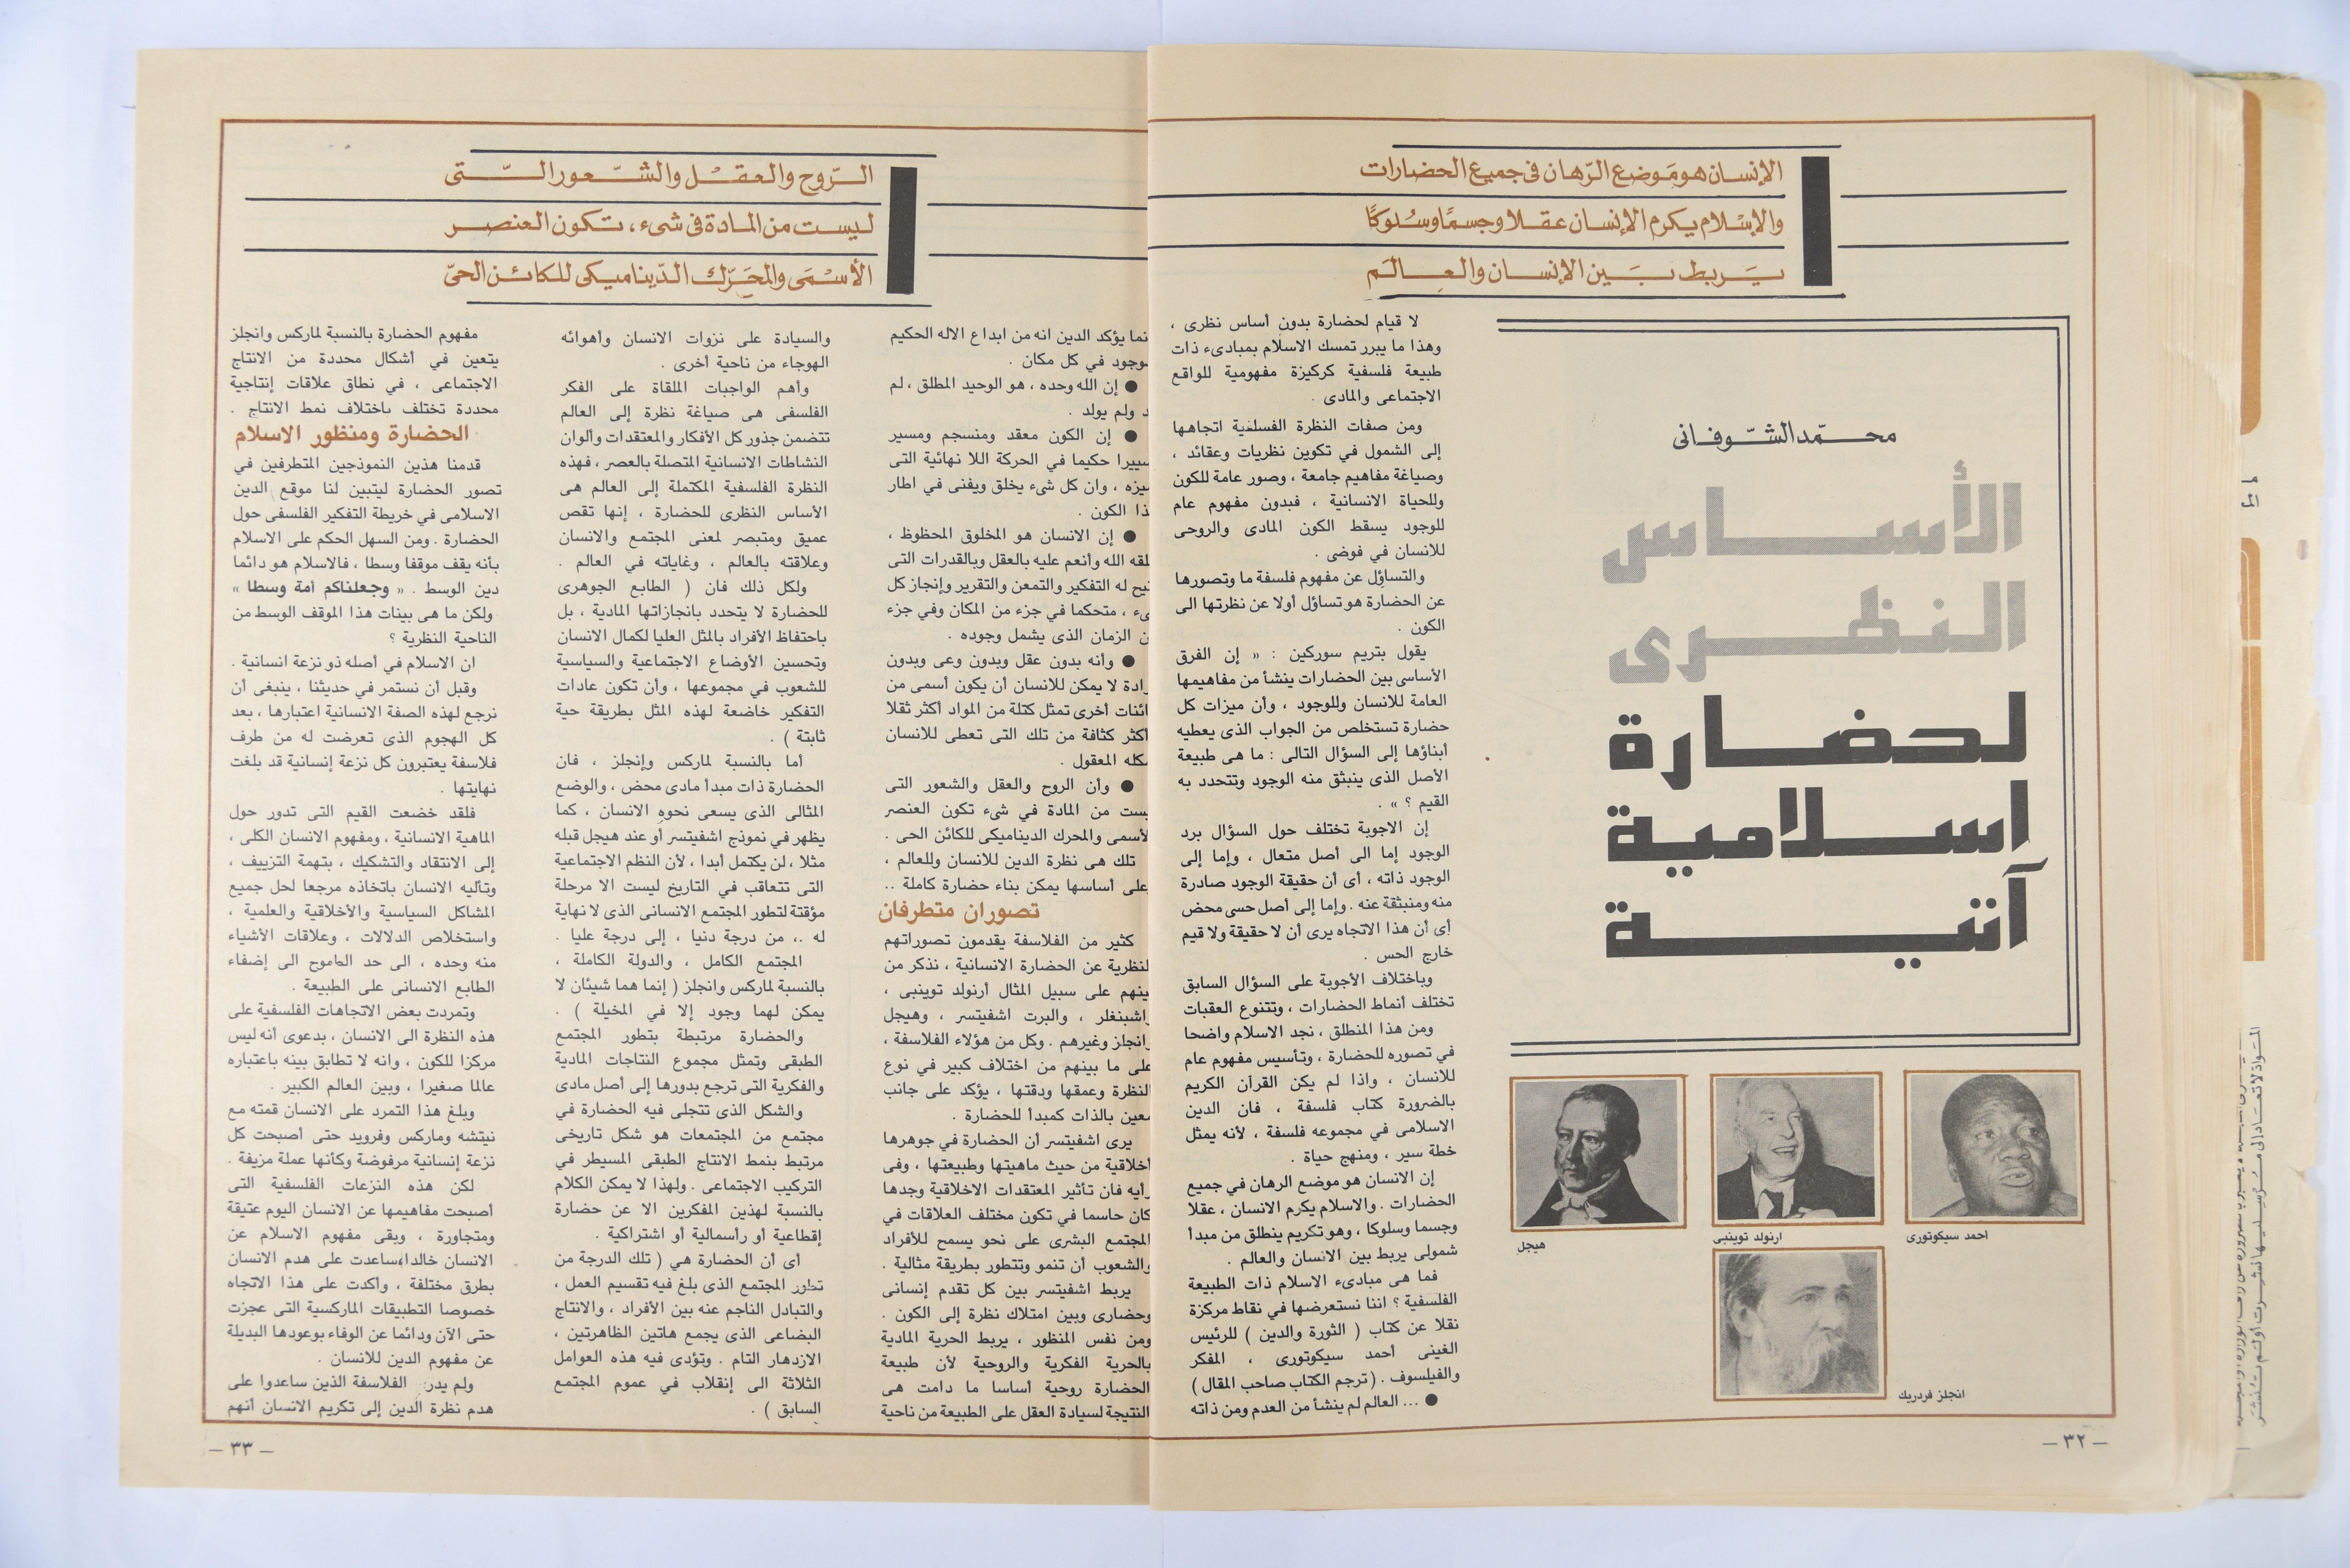 الإنسان هو مَوضع الرّهان فى جميع الحضارات
والإسْلام يكرم الإنسان عقلا وجسمًا وسُلوكًا
يَربط بَين الإنسان والعالَم
محمّد الشّوفانى
الأساس
النظرى
لحضارة
اسلامية
آتية
احمد سيكوتورى
ارنولد توينبى
هيجل
انجلز فردريك
لا قيام لحضارة بدون أساس نظرى ،
وهذا ما يبرر تمسك الاسلام بمبادىء ذات
طبيعة فلسفية كركيزة مفهومية للواقع
الاجتماعى والمادى .
ومن صفات النظرة الفسلفية اتجاهها
إلى الشمول في تكوين نظريات وعقائد ،
وصياغة مفاهيم جامعة ، وصور عامة للكون
وللحياة الانسانية ، فبدون مفهوم عام
للوجود يسقط الكون المادى والروحى
للانسان في فوضى .
والتساؤل عن مفهوم فلسفة ما وتصورها
عن الحضارة هو تساؤل أولا عن نظرتها الى
الكون .
يقول بتريم سوركين : « إن الفرق
الأساسى بين الحضارات ينشأ من مفاهيمها
العامة للانسان وللوجود ، وأن ميزات كل
حضارة تستخلص من الجواب الذى يعطيه
أبناؤها إلى السؤال التالى : ما هى طبيعة
الأصل الذى ينبثق منه الوجود وتتحدد به
القيم ؟ » .
إن الاجوبة تختلف حول السؤال برد
الوجود إما الى أصل متعال ، وإما إلى
الوجود ذاته ، أى أن حقيقة الوجود صادرة
منه ومنبثقة عنه . وإما إلى أصل حسى محض
أى أن هذا الاتجاه يرى أن لا حقيقة ولا قيم
خارج الحس .
وباختلاف الأجوبة على السؤال السابق
تختلف أنماط الحضارات ، وتتنوع العقبات
ومن هذا المنطلق ، نجد الاسلام واضحا
في تصوره للحضارة ، وتأسيس مفهوم عام
للانسان ، واذا لم يكن القرآن الكريم
بالضرورة كتاب فلسفة ، فان الدين
الاسلامى في مجموعه فلسفة ، لأنه يمثل
خطة سير ، ومنهج حياة .
إن الانسان هو موضع الرهان في جميع
الحضارات . والاسلام يكرم الانسان ، عقلا
وجسما وسلوكا ، وهو تكريم ينطلق من مبدأ
شمولى يربط بين الانسان والعالم .
فما هى مبادىء الإسلام ذات الطبيعة
الفلسفية ؟ اننا نستعرضها في نقاط مركزة
نقلا عن كتاب ( الثورة والدين ) للرئيس
الغينى أحمد سيكوتورى ، المفكر
والفيلسوف . ( ترجم الكتاب صاحب المقال )
● ... العالم لم ينشأ من العدم ومن ذاته
– ٣٢ –
الـرّوح والعقـل والشّـعور الـتى
ليست من المادة فى شىء ، تكون العنصر
الأسْمَى والمحَرّك الدّيناميكى للكائن الحىّ
نما يؤكد الدين انه من ابداع الاله الحكيم
وجود في كل مكان .
● إن الله وحده ، هو الوحيد المطلق ، لم
د ولم يولد .
● إن الكون معقد ومنسجم ومسير
سييرا حكيما في الحركة اللا نهائية التى
ميزه ، وان كل شىء يخلق ويفنى في اطار
ذا الكون .
● إن الانسان هو المخلوق المحظوظ ،
لقه الله وأنعم عليه بالعقل وبالقدرات التى
تيح له التفكير والتمعن والتقرير وإنجاز كل
ىء ، متحكما في جزء من المكان وفي جزء
ن الزمان الذى يشمل وجوده .
● وأنه بدون عقل وبدون وعى وبدون
رادة لا يمكن للانسان أن يكون أسمى من
ائنات أخرى تمثل كتلة من المواد أكثر ثقلا
أكثر كثافة من تلك التى تعطى للانسان
مكله المعقول .
● وأن الروح والعقل والشعور التى
يست من المادة في شىء تكون العنصر
لأسمى والمحرك الديناميكى للكائن الحى .
تلك هى نظرة الدين للانسان وللعالم ،
على أساسها يمكن بناء حضارة كاملة ..
تصوران متطرفان
كثير من الفلاسفة يقدمون تصوراتهم
لنظرية عن الحضارة الانسانية ، نذكر من
بينهم على سبيل المثال أرنولد توينبى ،
اشبنغلر ، والبرت اشفيتسر ، وهيجل
انجلز وغيرهم . وكل من هؤلاء الفلاسفة ،
على ما بينهم من اختلاف كبير في نوع
النظرة وعمقها ودقتها ، يؤكد على جانب
معين بالذات كمبدأ للحضارة .
يرى اشفيتسر أن الحضارة في جوهرها
أخلاقية من حيث ماهيتها وطبيعتها ، وفى
رأيه فان تأثير المعتقدات الاخلاقية وجدها
كان حاسما في تكون مختلف العلاقات في
المجتمع البشرى على نحو يسمح للأفراد
والشعوب أن تنمو وتتطور بطريقة مثالية .
يربط اشفيتسر بين كل تقدم إنسانى
وحضارى وبين امتلاك نظرة إلى الكون .
ومن نفس المنظور ، يربط الحرية المادية
بالحرية الفكرية والروحية لأن طبيعة
الحضارة روحية أساسا ما دامت هى
النتيجة لسيادة العقل على الطبيعة من ناحية
والسيادة على نزوات الانسان وأهوائه
الهوجاء من ناحية أخرى .
وأهم الواجبات الملقاة على الفكر
الفلسفى هى صياغة نظرة إلى العالم
تتضمن جذور كل الأفكار والمعتقدات وألوان
النشاطات الانسانية المتصلة بالعصر ، فهذه
النظرة الفلسفية المكتملة إلى العالم هى
الأساس النظرى للحضارة ، إنها تقص
عميق ومتبصر لمعنى المجتمع والانسان
وعلاقته بالعالم ، وغاياته في العالم .
ولكل ذلك فان ( الطابع الجوهرى
للحضارة لا يتحدد بانجازاتها المادية ، بل
باحتفاظ الأفراد بالمثل العليا لكمال الانسان
وتحسين الأوضاع الاجتماعية والسياسية
للشعوب في مجموعها ، وأن تكون عادات
التفكير خاضعة لهذه المثل بطريقة حية
ثابتة ) .
أما بالنسبة لماركس وإنجلز ، فان
الحضارة ذات مبدأ مادى محض ، والوضع
المثالى الذى يسعى نحوه الانسان ، كما
يظهر في نموذج اشفيتسر أو عند هيجل قبله
مثلا ، لن يكتمل أبدا ، لأن النظم الاجتماعية
التى تتعاقب في التاريخ ليست الا مرحلة
مؤقتة لتطور المجتمع الانسانى الذى لا نهاية
له .، من درجة دنيا ، إلى درجة عليا .
المجتمع الكامل ، والدولة الكاملة ،
بالنسبة لماركس وانجلز ( إنما هما شيئان لا
يمكن لهما وجود إلا في المخيلة ) .
والحضارة مرتبطة بتطور المجتمع
الطبقى وتمثل مجموع النتاجات المادية
والفكرية التى ترجع بدورها إلى أصل مادى
والشكل الذى تتجلى فيه الحضارة في
مجتمع من المجتمعات هو شكل تاريخى
مرتبط بنمط الانتاج الطبقى المسيطر في
التركيب الاجتماعى . ولهذا لا يمكن الكلام
بالنسبة لهذين المفكرين الا عن حضارة
إقطاعية أو رأسمالية أو اشتراكية .
أى أن الحضارة هي ( تلك الدرجة من
تطور المجتمع الذى بلغ فيه تقسيم العمل ،
والتبادل الناجم عنه بين الأفراد ، والانتاج
البضاعى الذى يجمع هاتين الظاهرتين ،
الازدهار التام . وتؤدى فيه هذه العوامل
الثلاثة الى إنقلاب في عموم المجتمع
السابق ) .
مفهوم الحضارة بالنسبة لماركس وانجلز
يتعين في أشكال محددة من الانتاج
الاجتماعى ، في نطاق علاقات إنتاجية
محددة تختلف باختلاف نمط الانتاج .
الحضارة ومنظور الاسلام
قدمنا هذين النموذجين المتطرفين في
تصور الحضارة ليتبين لنا موقع الدين
الاسلامى في خريطة التفكير الفلسفى حول
الحضارة . ومن السهل الحكم على الاسلام
بأنه يقف موقفا وسطا ، فالاسلام هو دائما
دين الوسط . « وجعلناكم أمة وسطا »
ولكن ما هى بينات هذا الموقف الوسط من
الناحية النظرية ؟
ان الاسلام في أصله ذو نزعة انسانية .
وقبل أن نستمر في حديثنا ، ينبغى أن
نرجع لهذه الصفة الانسانية اعتبارها ، بعد
كل الهجوم الذى تعرضت له من طرف
فلاسفة يعتبرون كل نزعة إنسانية قد بلغت
نهايتها .
فلقد خضعت القيم التى تدور حول
الماهية الانسانية ، ومفهوم الانسان الكلى ،
إلى الانتقاد والتشكيك ، بتهمة التزييف ،
وتأليه الانسان باتخاذه مرجعا لحل جميع
المشاكل السياسية والأخلاقية والعلمية ،
واستخلاص الدلالات ، وعلاقات الأشياء
منه وحده ، الى حد الطموح الى إضفاء
الطابع الانسانى على الطبيعة .
وتمردت بعض الاتجاهات الفلسفية على
هذه النظرة الى الانسان ، بدعوى أنه ليس
مركزا للكون ، وانه لا تطابق بينه باعتباره
عالما صغيرا ، وبين العالم الكبير .
وبلغ هذا التمرد على الانسان قمته مع
نيتشه وماركس وفرويد حتى أصبحت كل
نزعة إنسانية مرفوضة وكأنها عملة مزيفة .
لكن هذه النزعات الفلسفية التى
أصبحت مفاهيمها عن الانسان اليوم عتيقة
ومتجاورة ، وبقى مفهوم الاسلام عن
الانسان خالدا، ساعدت على هدم الانسان
بطرق مختلفة ، واكدت على هذا الاتجاه
خصوصا التطبيقات الماركسية التى عجزت
حتى الآن ودائما عن الوفاء بوعودها البديلة
عن مفهوم الدين للانسان .
ولم يدر الفلاسفة الذين ساعدوا على
هدم نظرة الدين إلى تكريم الانسان أنهم
– ٣٣ –